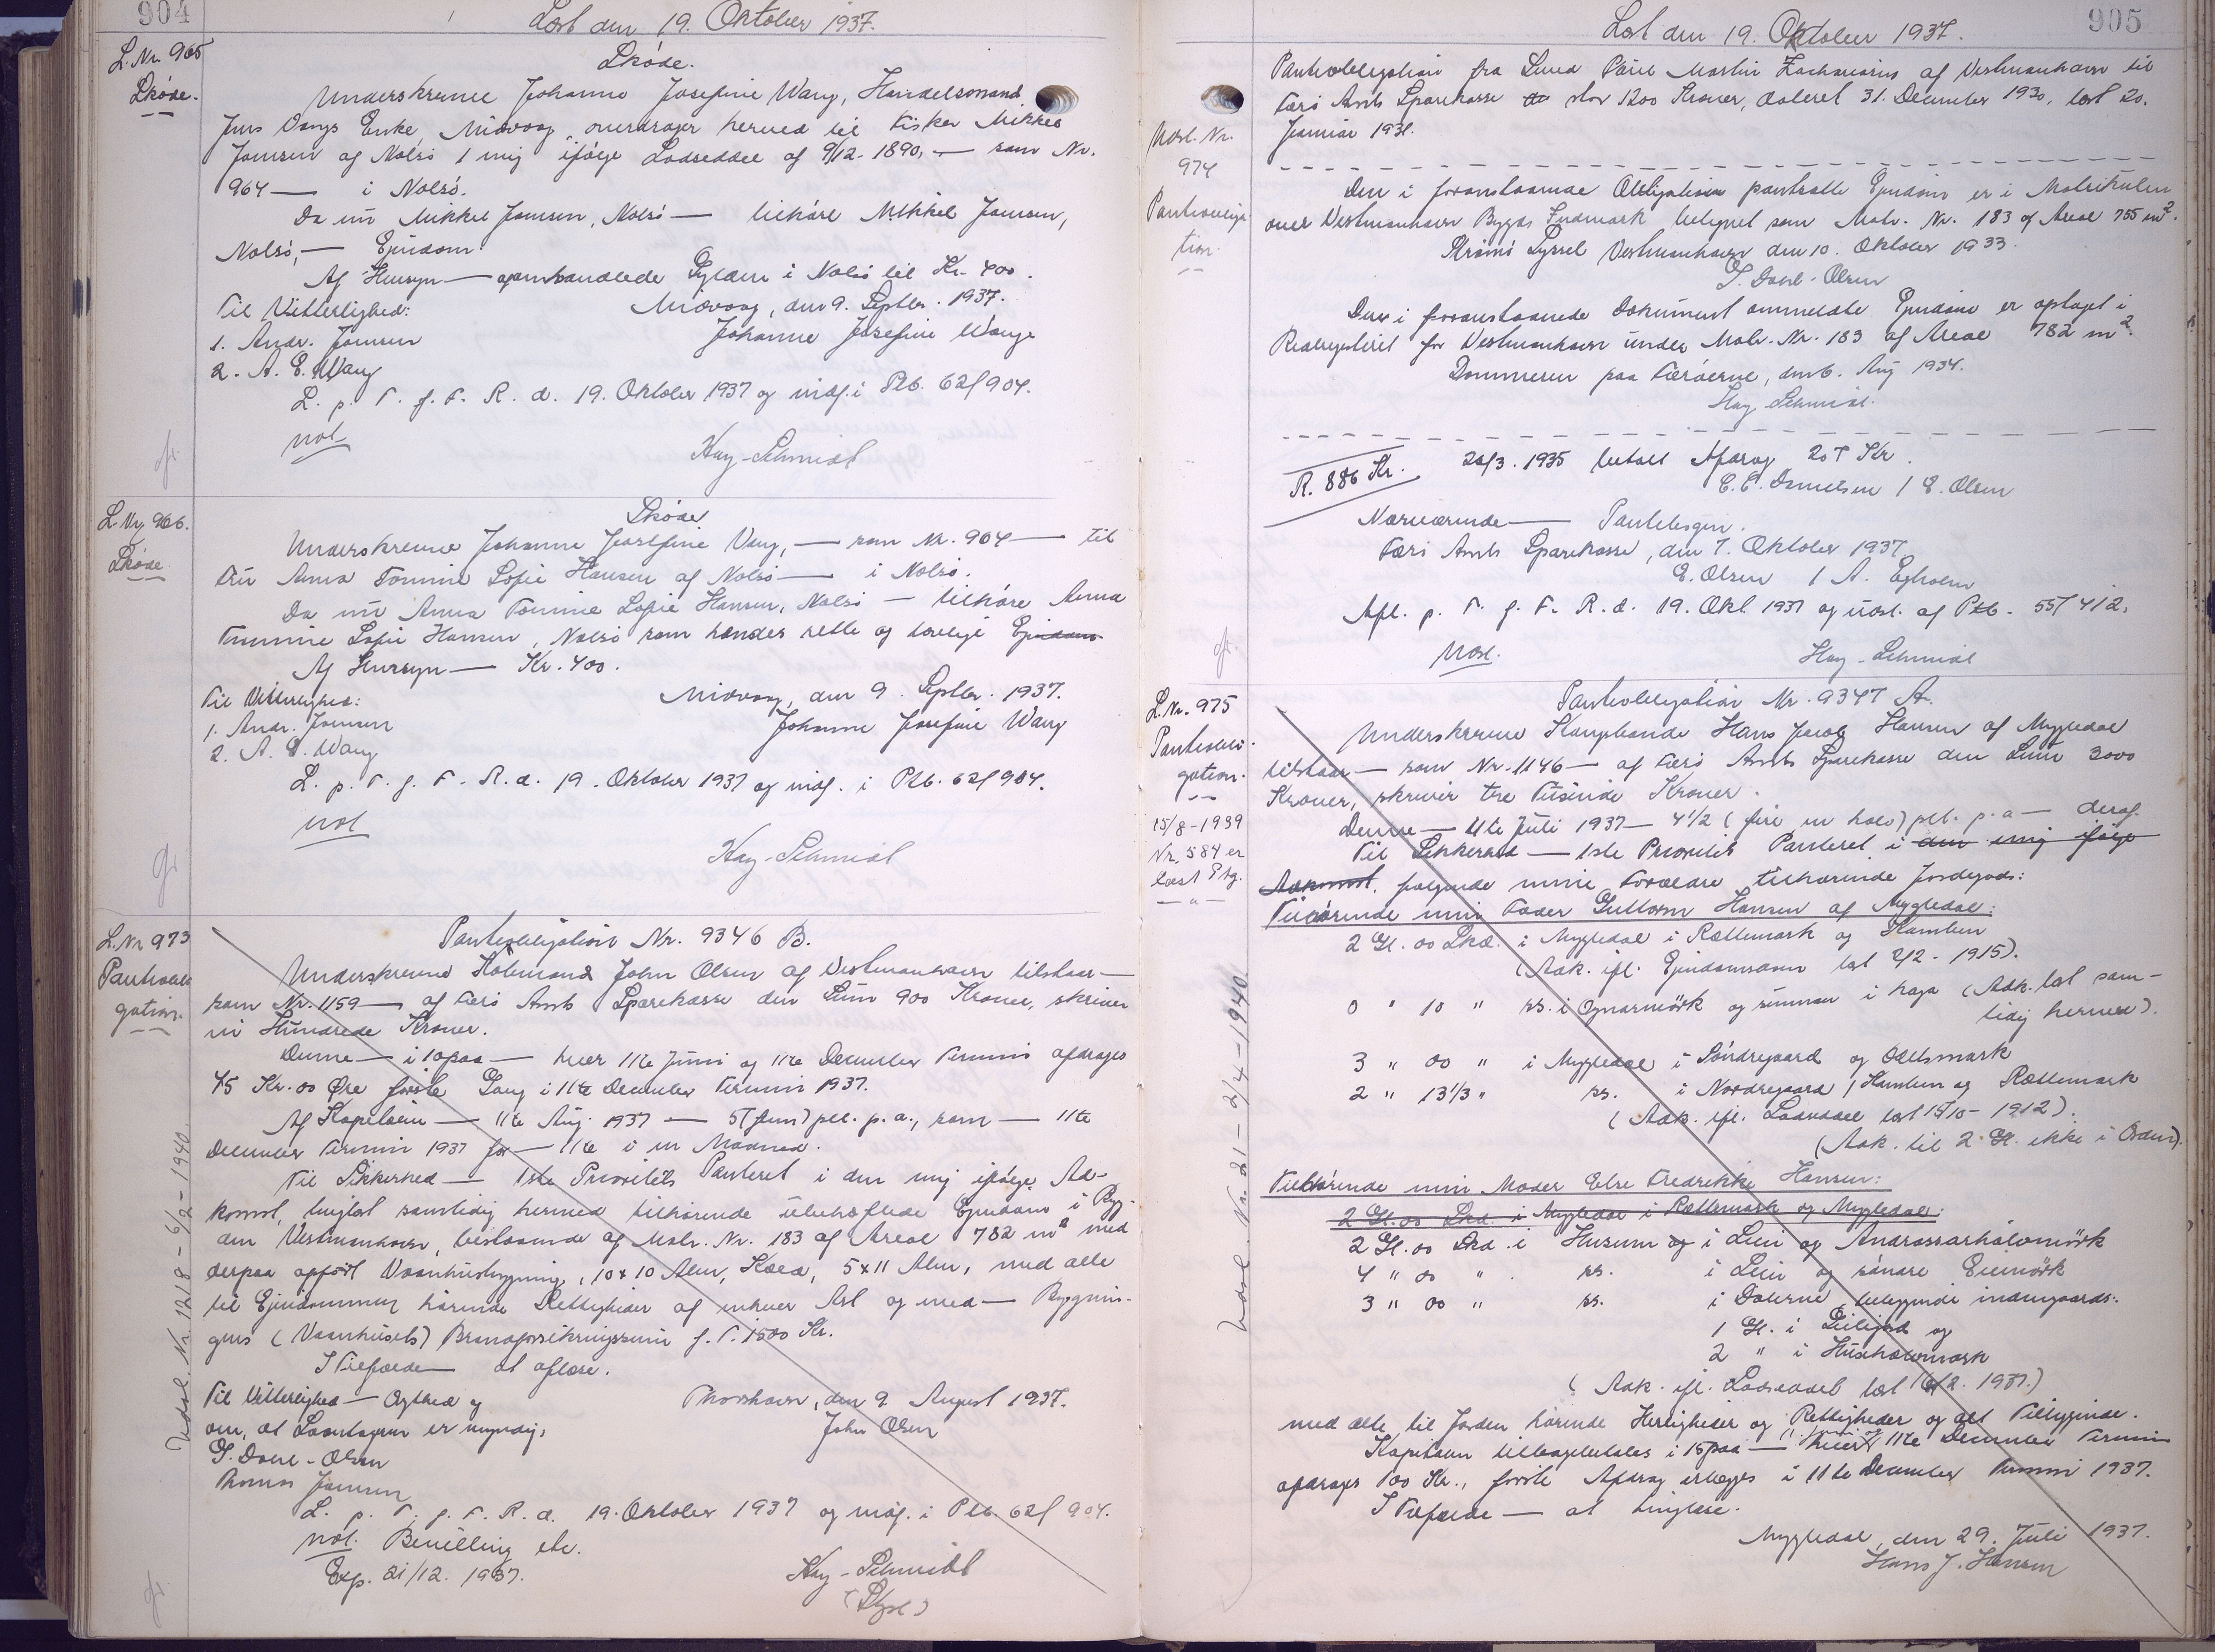 904
Læst den 19. Oktober 1937.
L. Nr. 965
Skøde.
Skøde.
Underskrevne Johanne Josefine Wang, Handelsmand
Jens Vangs Enke, Midvaag, overdrager herved til Fisker Mikkel
Joensen af Nolsø 1 mig ifølge Lodseddel af 9/12. 1890, — som Nr.
964 — i Nolsø.
Da nu Mikkel Joensen, Nolsø — tilhøre Mikkel Joensen,
Nolsø, — Ejendom.
Af Hensyn — omhandlede Gylden i Nolsø til Kr. 400.
Til Vitterlighed:
Midvaag, den 9. Septbr. 1937.
1. Andr. Joensen
Johanne Josefine Wang
2. A. E. Wang
L. p. T. f. F. R. d. 19. Oktober 1937 og indf. i Ptb. 62f 904.
not
Hay-Schmidt
L. Nr. 966.
Skøde
Skøde
Underskrevne Johanne Josefine Vang, — som Nr. 904 — til
Fru Anna Tomine Sofie Hansen af Nolsø — i Nolsø.
Da nu Anna Tomine Sofie Hansen, Nolsø — tilhøre Anna
Tommine Sofie Hansen, Nolsø som hendes rette og lovlige Ejendom
Af Hensyn — Kr. 400.
Til Vitterlighed:
Midvaag, den 9. Septbr. 1937.
1. Andr. Joensen
Johanne Josefine Wang
2. A. E. Wang
L. p. T. f. F. R. d. 19. Oktober 1937 og indf. i Ptb. 62f 904.
not
Hay-Schmidt
L. Nr 973
Pantobli-
gation.
Udsl. Nr. 1218 - 6/2 - 1940.
Pantobligation Nr. 9346 B.
Underskrevne Kolmand John Olsen af Vestmanhavn tilstaar —
som Nr. 1159 — af Færø Amts Sparekasse den Sum 900 Kroner, skriver
ni Hundrede Kroner.
Denne — i 10 paa — hver 11te Juni og 11te December Termin afdrages
45 Kr. 00 Øre første Gang i 11te December Termin 1937.
Af Kapitalen — 11te Aug. 1937 — 5 (fem) pct. p. a., som — 11te
December Termin 1937 for — 11te i en Maaned.
Til Sikkerhed — 1ste Prioritets Panteret i den mig ifølge Ad-
komst, tinglæst samtidig hermed tilhørende ubehæftede Ejendom i Byg-
den Vestmanhavn, bestaaende af Matr. Nr. 183 af Areal 782 m² med
derpaa opført Vaanhusbygning, 10 x 10 Alen, Kæld, 5 x 11 Alen, med alle
til Ejendommen hørende Rettigheder af enhver Art og med — Bygnin-
gens (Vaanhusets) Brandforsikringssum f. T. 1500 Kr.
I Tilfælde — at aflæse.
Til Vitterlighed — Ægthed og
Thorshavn, den 9. August 1937.
om, at Laantageren er myndig,
John Olsen
S. Dahl-Olsen
Thomas Joensen
L. p. T. f. F. R. d. 19. Oktober 1937 og indf. i Ptb. 62f 904.
not. Bevilling etc.
Exp. 21/12. 1937.
Hay-Schmidt
905
Læst den 19. Oktober 1937.
Udsl. Nr.
974
Pantobliga-
tion.
Pantobligation fra Lund Poul Martin Zachariasen af Vestmanhavn til
Færø Amts Sparekasse stor 1200 Kroner, dateret 31. December 1930, læst 20.
Januar 1931.
Den i foranstaaende Obligation pantsatte Ejendom er i Matrikulen
over Vestmanhavn Bygds Indmark betegnet som Matr. Nr. 183 af Areal 755 m².
Strømø Syssel Vestmanhavn den 10. Oktober 1933.
S. Dahl-Olsen
Den i foranstaaende Dokument ommeldte Ejendom er optaget i
Realregisteret for Vestmanhavn under Matr. Nr. 183 af Areal 782 m².
Dommeren paa Færøerne, den 6. Aug 1934.
Hay-Schmidt.
R. 886 Kr.
20/3. 1935 betalt Afdrag 207 Kr.
E. C. Danielsen / E. Olsen
Nærværende — Pantebogen.
Færø Amts Sparekasse, den 7. Oktober 1937
E. Olsen / A. Egholm
Afl. p. T. f. F. R. d. 19. Okt. 1937 og udsl. af Ptb. 55f 412.
Udsl.
Hay-Schmidt
L. Nr. 975
Pantobli-
gation.
15/8-1939
Nr. 584 er
læst Ptg.
Udsl. Nr. 21 - 2/4 - 1940.
Pantobligation Nr. 9347 A.
Underskrevne Kongsbonde Hans Jacob Hansen af Mygledal
tilstaar — som Nr. 1146 — af Færø Amts Sparekasse den Sum 3000
Kroner, skriver tre Tusinde Kroner.
Denne — 11te Juli 1937 — 4 1/2 (fire en halv) pct. p. a — deraf.
Til Sikkerhed — 1ste Prioritets Panteret i den mig ifølge
Adkomst, følgende mine Forældre tilhørende Jordegods:
Tilhørende min Fader Guttorm Hansen af Mygledal:
2 Gl. 00 Skd. i Mygledal i Rættemark og Hamlen
(Adk. ifl. Ejendomsdom læst 2/2 - 1915).
0 " 10 " ss. i Ognarmørk og sunnan i haga (Adk. læst sam-
tidig hermed).
3 " 00 " i Mygledal i Søndregaard og Odelsmark
2 " 13 1/3 " ss. i Nordregaard, Hamlen og Rættemark
(Adk. ifl. Lodseddel læst 15/10 - 1912).
(Adk. til 2 Gl. ikke i Orden).
Tilhørende min Moder Else Fredrikke Hansen:
2 Gl. 00 Skd. i Mygledal i Rættemark og Mygledal:
2 Gl. 00 Skd. i Husum og i Lien og Andrassarhálvmørk
4 " 00 " ss. i Lien og
3 " 00 " ss. i Dalerne, beliggende indengaards:
1 Gl. i og
2 " i
(Adk. ifl. Lodseddel læst 1937.)
med alle til Jorden hørende Herligheder og Rettigheder og alt Tilliggende.
Kapitalen tilbagebetales i 15 paa — hvert 11te December Termin
afdrages 100 Kr., første Afdrag erlægges i 11te December Termin 1937.
I Tilfælde — at tinglæse.
Mygledal, den 29. Juli 1937.
Hans J. Hansen